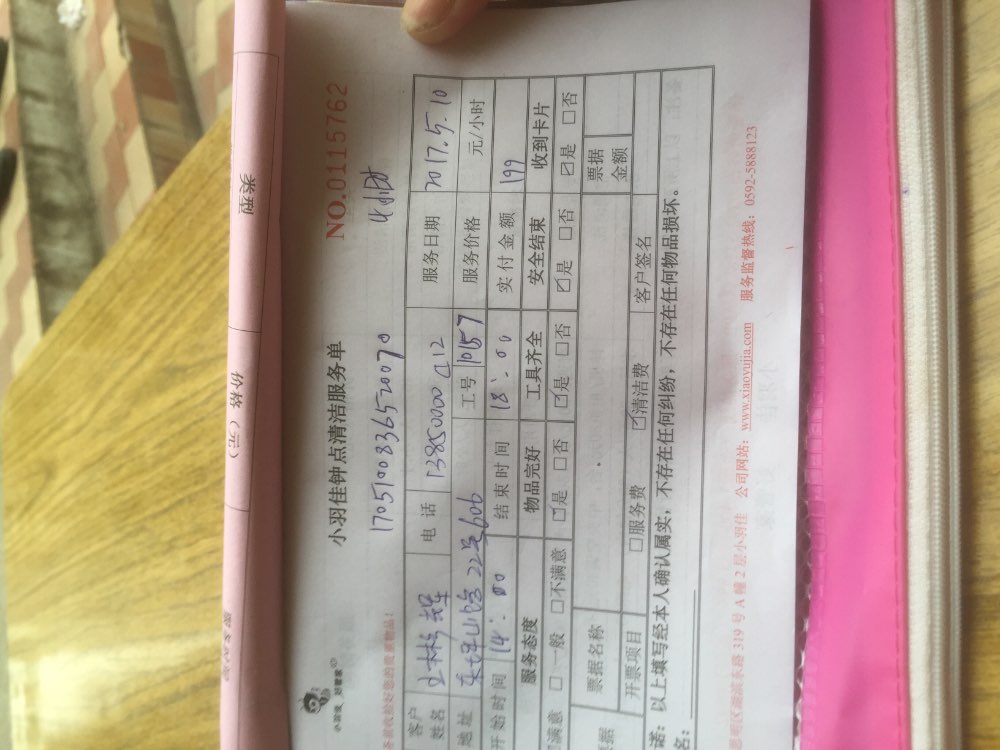 类型
价格（元）
小羽佳钟点清洁服务单
NO.0115762
1705100836520070
4小时
客户姓名 电话 13850000012 服务日期 2017.5.10
地址 22号606 工号 10157 服务价格 元/小时
开始时间 14:00 结束时间 18:00 实付金额 199
服务态度 物品完好 工具齐全 安全结束 收到卡片
满意 □一般 □不满意 ☑是 □否 ☑是 □否 ☑是 □否 ☑是 □否
票据名称 票据金额
开票项目 □服务费 ☑清洁费 客户签名
诺：以上填写经本人确认属实，不存在任何纠纷，不存在任何物品损坏。
名：
思明区湖滨东路319号A幢2层小羽佳 公司网站：www.xiaoyujia.com 服务监督热线：0592-5888123